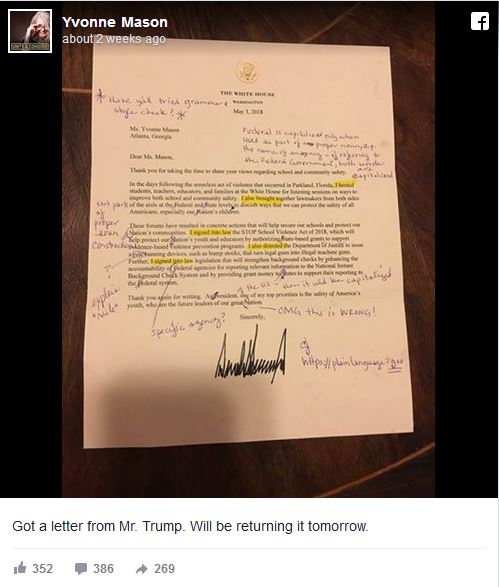 Yvonne Mason
about 2 weeks ago
UNITE & CONQUER
THE WHITE HOUSE
WASHINGTON
May 3, 2018
* Have y'all tried grammar &
style check? *
Federal is capitalized only when
used as part of a proper noun, e.g.
the name of an agency - if referring to
the Federal Government, both words
are
capitalized
Ms. Yvonne Mason
Atlanta, Georgia
Dear Ms. Mason,
Thank you for taking the time to share your views regarding school and community safety.
In the days following the senseless act of violence that occurred in Parkland, Florida, I hosted
students, teachers, educators, and families at the White House for listening sessions on ways to
improve both school and community safety. I also brought together lawmakers from both sides
of the aisle at the Federal and State levels to discuss ways that we can protect the safety of all
Americans, especially our Nation's children.
Not part
of
proper
noun
construction
These forums have resulted in concrete actions that will help secure our schools and protect our
Nation's communities. I signed into law the STOP School Violence Act of 2018, which will
help protect our Nation's youth and educators by authorizing State-based grants to support
evidence-based violence prevention programs. I also directed the Department of Justice to issue
a rule banning devices, such as bump stocks, that turn legal guns into illegal machine guns.
Further, I signed into law legislation that will strengthen background checks by enhancing the
accountability of Federal agencies for reporting relevant information to the National Instant
Background Check System and by providing grant money to States to support their reporting to
the Federal system.
?
explain
"rule"
of the US - then it would be capitalized
Thank you again for writing. As President, one of my top priorities is the safety of America's
youth, who are the future leaders of our great Nation.
OMG this is WRONG!
Sincerely,
specific agency?
https://plainlanguage.gov
Got a letter from Mr. Trump. Will be returning it tomorrow.
352 386 269